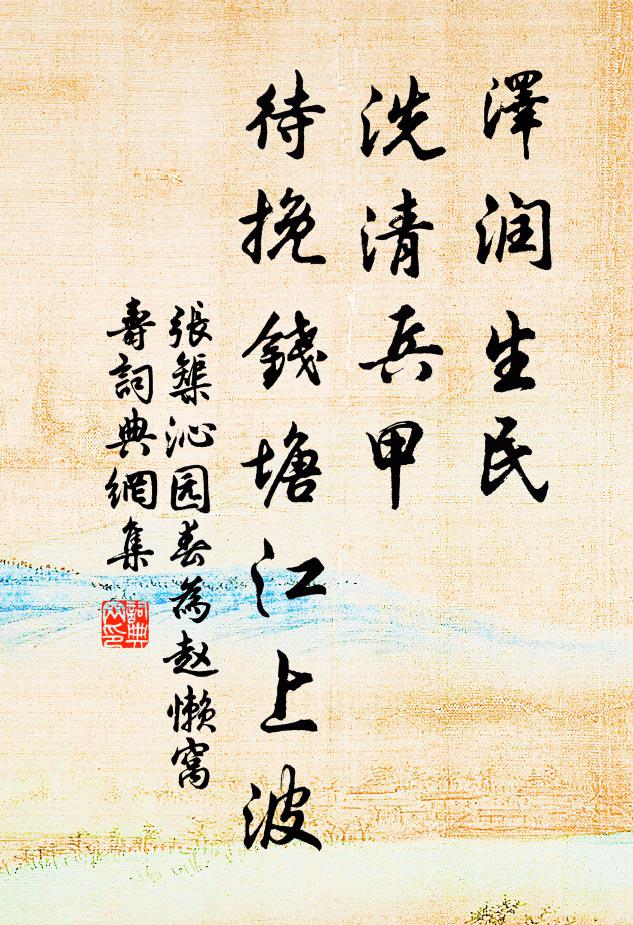 澤润生民
洗清兵甲
待挽錢塘江上波
張榘沁园春為赵懒窝
壽詞典網集
詞典
网印